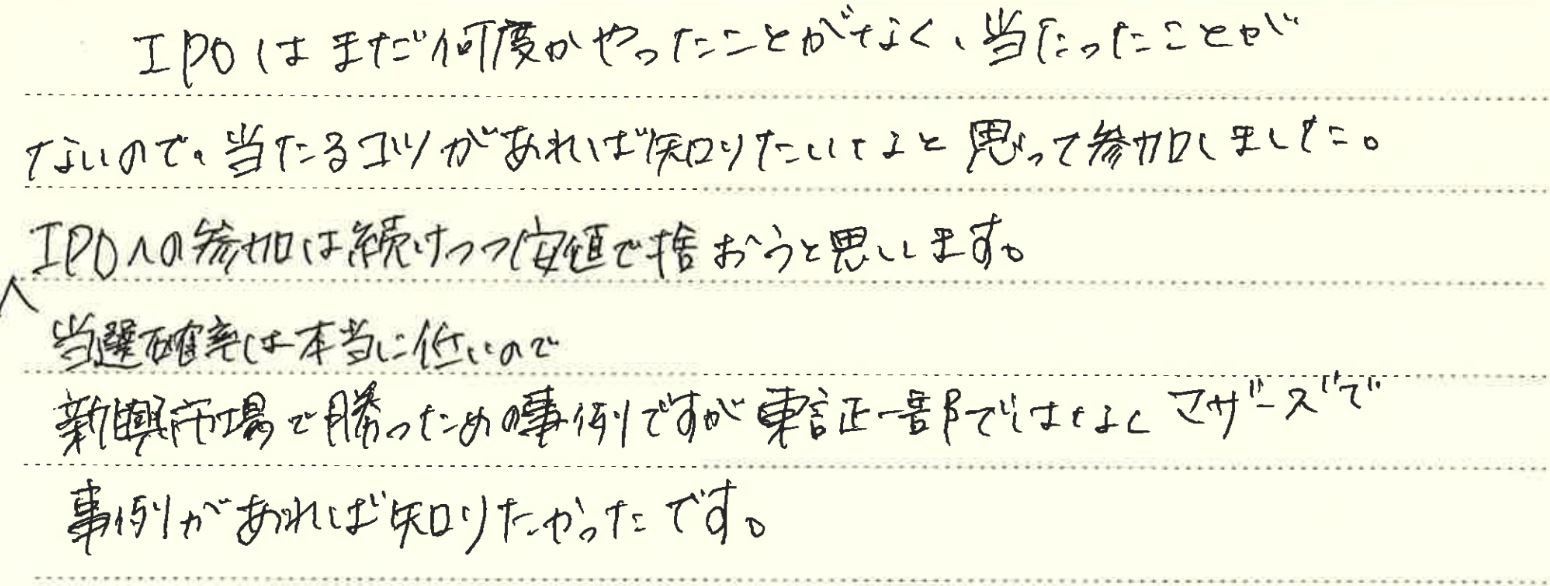 IPOはまだ何度かやったことがなく、当たったことが
ないので、当たるコツがあれば知りたいなと思って参加しました。
IPOへの参加は続けつつ安値で捨おうと思いします。
当選確率は本当に低いので
新興市場で勝つための事例ですが東証一部ではなくマザーズで
事例があれば知りたかったです。